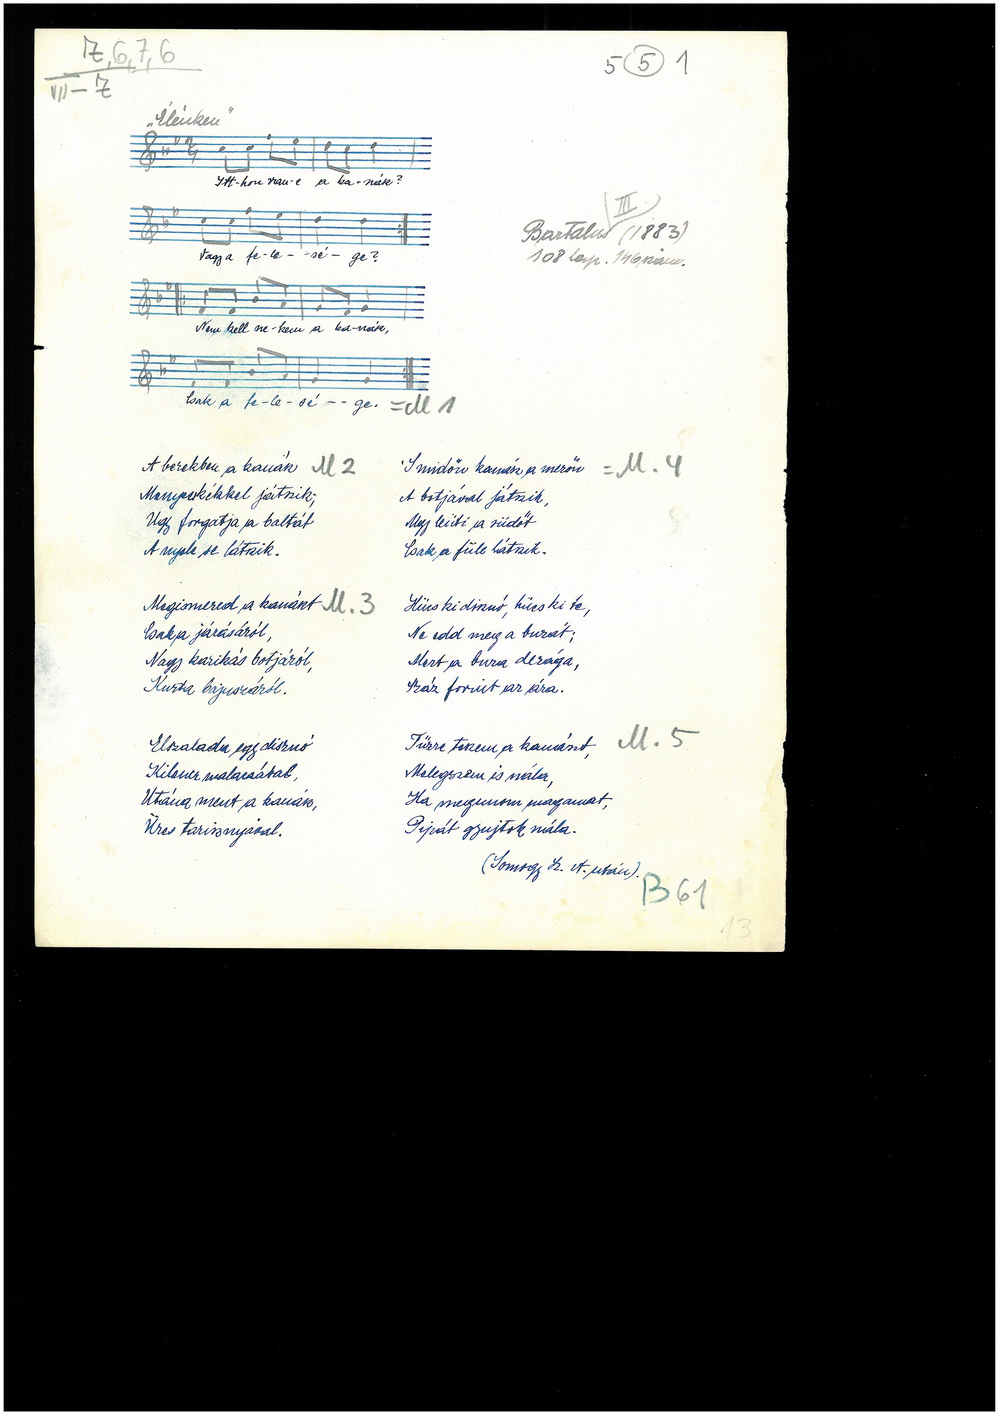 7, 6, 7, 6
VII – 7
5 5 1
„Élénken"
Itt-hon van-e a ka-nák?
Vagy a fe-le- - sé - ge?
III.
Bartalus (1883)
108 lap. 146 szám.
Nem kell ne-kem a ka-nák,
Csak a fe-le-sé - - ge. = M 1
A berekben a kanák M 2
Menyecskékkel játszik;
Úgy forgatja a baltát
A nyele se látszik.
Megismered a kanászt M. 3
Csak a járásáról,
Nagy karikás botjáról,
Kurta bajuszáról.
Elszaladu egy disznó
Kilenc malaczával,
Utána ment a kanák,
Üres tarisznyával.
S midőn kanász a merőn = M. 4
A botjával játszik,
Úgy leüti a südőt
Csak a füle látszik.
Hücs ki disznó, hücs ki te,
Ne edd meg a buzát;
Mert a buza derága,
Száz forint az ára.
Tüzre teszem a kanászt, M. 5
Melegszem is nála,
Ha megunom magamat,
Pipát gyujtok nála.
(Somogy Sz. A. után).
B 61
13